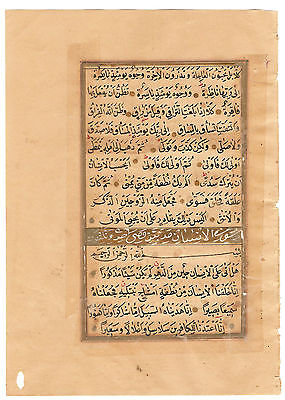 كَلَّا بَلْ تُحِبُّونَ الْعَاجِلَةَ وَتَذَرُونَ الْآخِرَةَ وُجُوهٌ يَوْمَئِذٍ نَاضِرَةٌ
إِلَى رَبِّهَا نَاظِرَةٌ وَوُجُوهٌ يَوْمَئِذٍ بَاسِرَةٌ تَظُنُّ أَنْ يُفْعَلَ بِهَا
فَاقِرَةٌ كَلَّا إِذَا بَلَغَتِ التَّرَاقِيَ وَقِيلَ مَنْ رَاقٍ وَظَنَّ أَنَّهُ الْفِرَاقُ
وَالْتَفَّتِ السَّاقُ بِالسَّاقِ إِلَى رَبِّكَ يَوْمَئِذٍ الْمَسَاقُ فَلَا صَدَّقَ
وَلَا صَلَّى وَلَكِنْ كَذَّبَ وَتَوَلَّى ثُمَّ ذَهَبَ إِلَى أَهْلِهِ يَتَمَطَّى
أَوْلَى لَكَ فَأَوْلَى ثُمَّ أَوْلَى لَكَ فَأَوْلَى أَيَحْسَبُ الْإِنْسَانُ
أَنْ يُتْرَكَ سُدًى أَلَمْ يَكُ نُطْفَةً مِنْ مَنِيٍّ يُمْنَى ثُمَّ كَانَ
عَلَقَةً فَخَلَقَ فَسَوَّى فَجَعَلَ مِنْهُ الزَّوْجَيْنِ الذَّكَرَ
وَالْأُنْثَى أَلَيْسَ ذَلِكَ بِقَادِرٍ عَلَى أَنْ يُحْيِيَ الْمَوْتَى
سورة الإنسان
بِسْمِ اللَّهِ الرَّحْمَنِ الرَّحِيمِ
هَلْ أَتَى عَلَى الْإِنْسَانِ حِينٌ مِنَ الدَّهْرِ لَمْ يَكُنْ شَيْئًا مَذْكُورًا
إِنَّا خَلَقْنَا الْإِنْسَانَ مِنْ نُطْفَةٍ أَمْشَاجٍ نَبْتَلِيهِ فَجَعَلْنَاهُ
سَمِيعًا بَصِيرًا إِنَّا هَدَيْنَاهُ السَّبِيلَ إِمَّا شَاكِرًا وَإِمَّا كَفُورًا
إِنَّا أَعْتَدْنَا لِلْكَافِرِينَ سَلَاسِلَ وَأَغْلَالًا وَسَعِيرًا